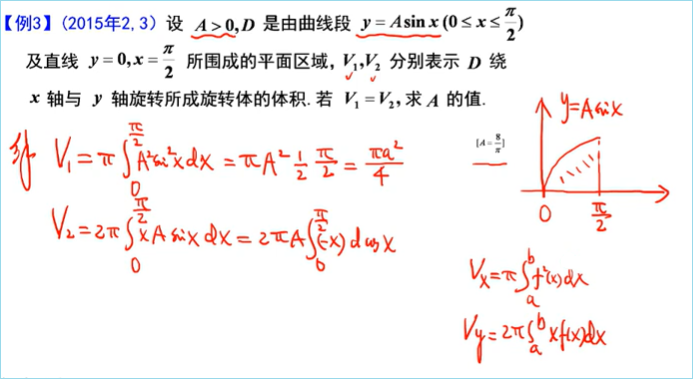 【例3】(2015年2,3) 设 A>0, D 是由曲线段 y=Asin x(0≤x≤π/2)
及直线 y=0,x=π/2 所围成的平面区域, V₁,V₂ 分别表示 D 绕
x 轴与 y 轴旋转所成旋转体的体积.若 V₁=V₂,求 A 的值.
[A=8/π]
y=Asinx
解 V₁=π∫₀^(π/2) A²sin²x dx = πA² 1/2 π/2 = πa²/4
0 π/2
V₂=2π∫₀^(π/2) xA sinx dx = 2πA∫₀^(π/2) (-x) d cosx
Vx=π∫ₐᵇ f²(x)dx
Vy=2π∫ₐᵇ xf(x)dx